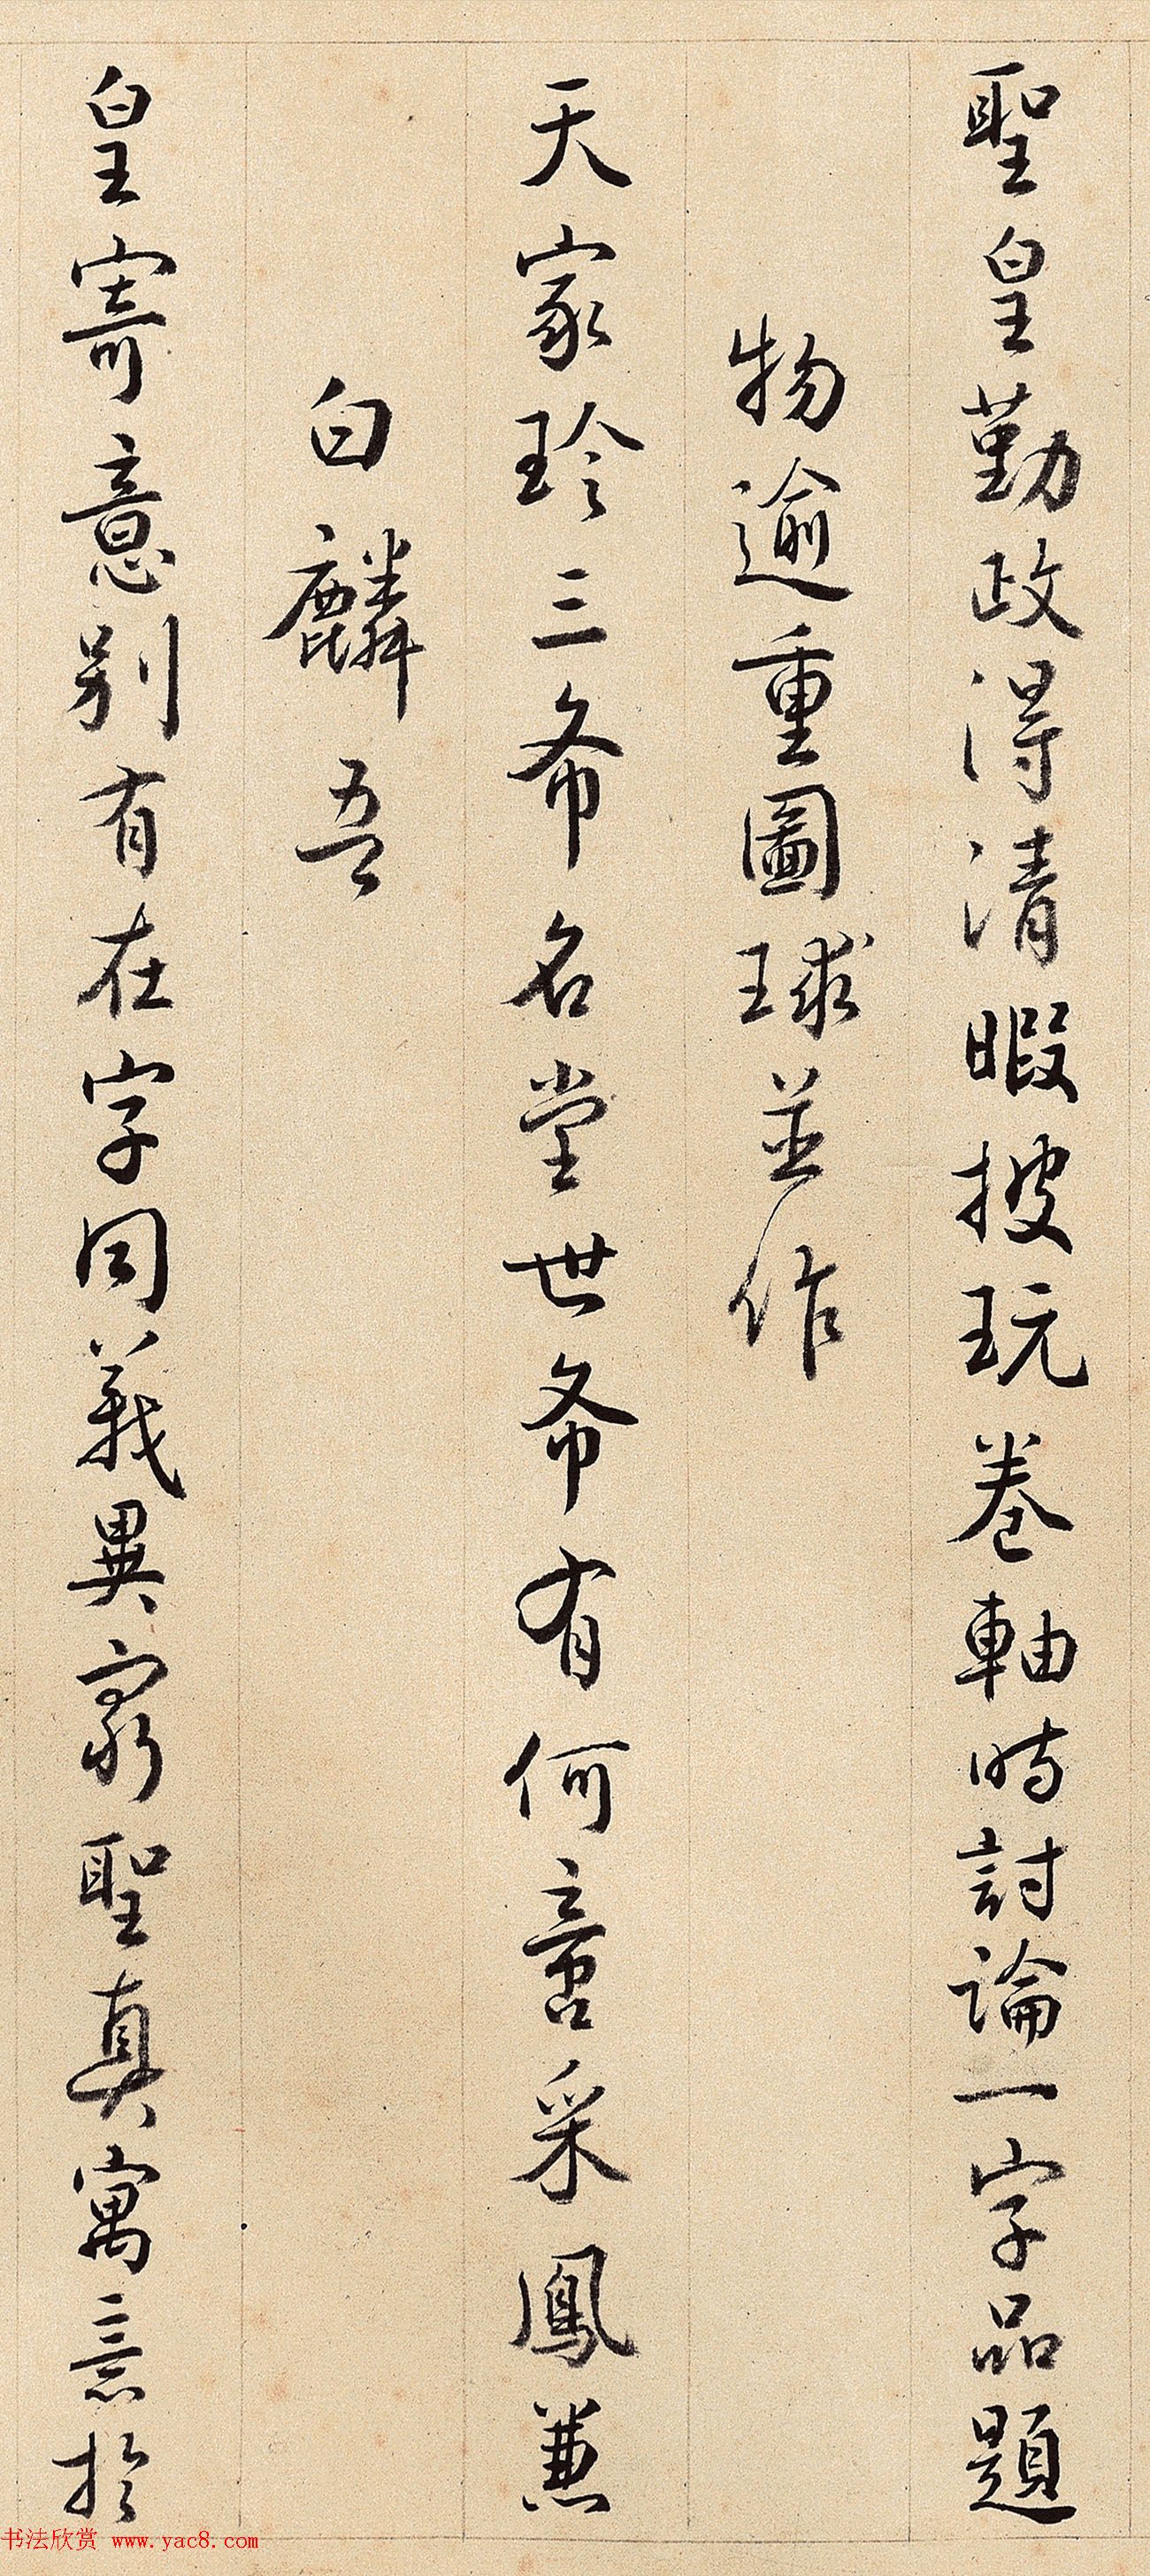 聖皇勤政得清暇披玩卷軸時討論一字品題
物逾重圖球並作
天家珍三希名堂世希有何啻采鳳兼
白麟吾
皇寄意別有在字同義異窮聖真寓意於
书法欣赏 www.yac8.com